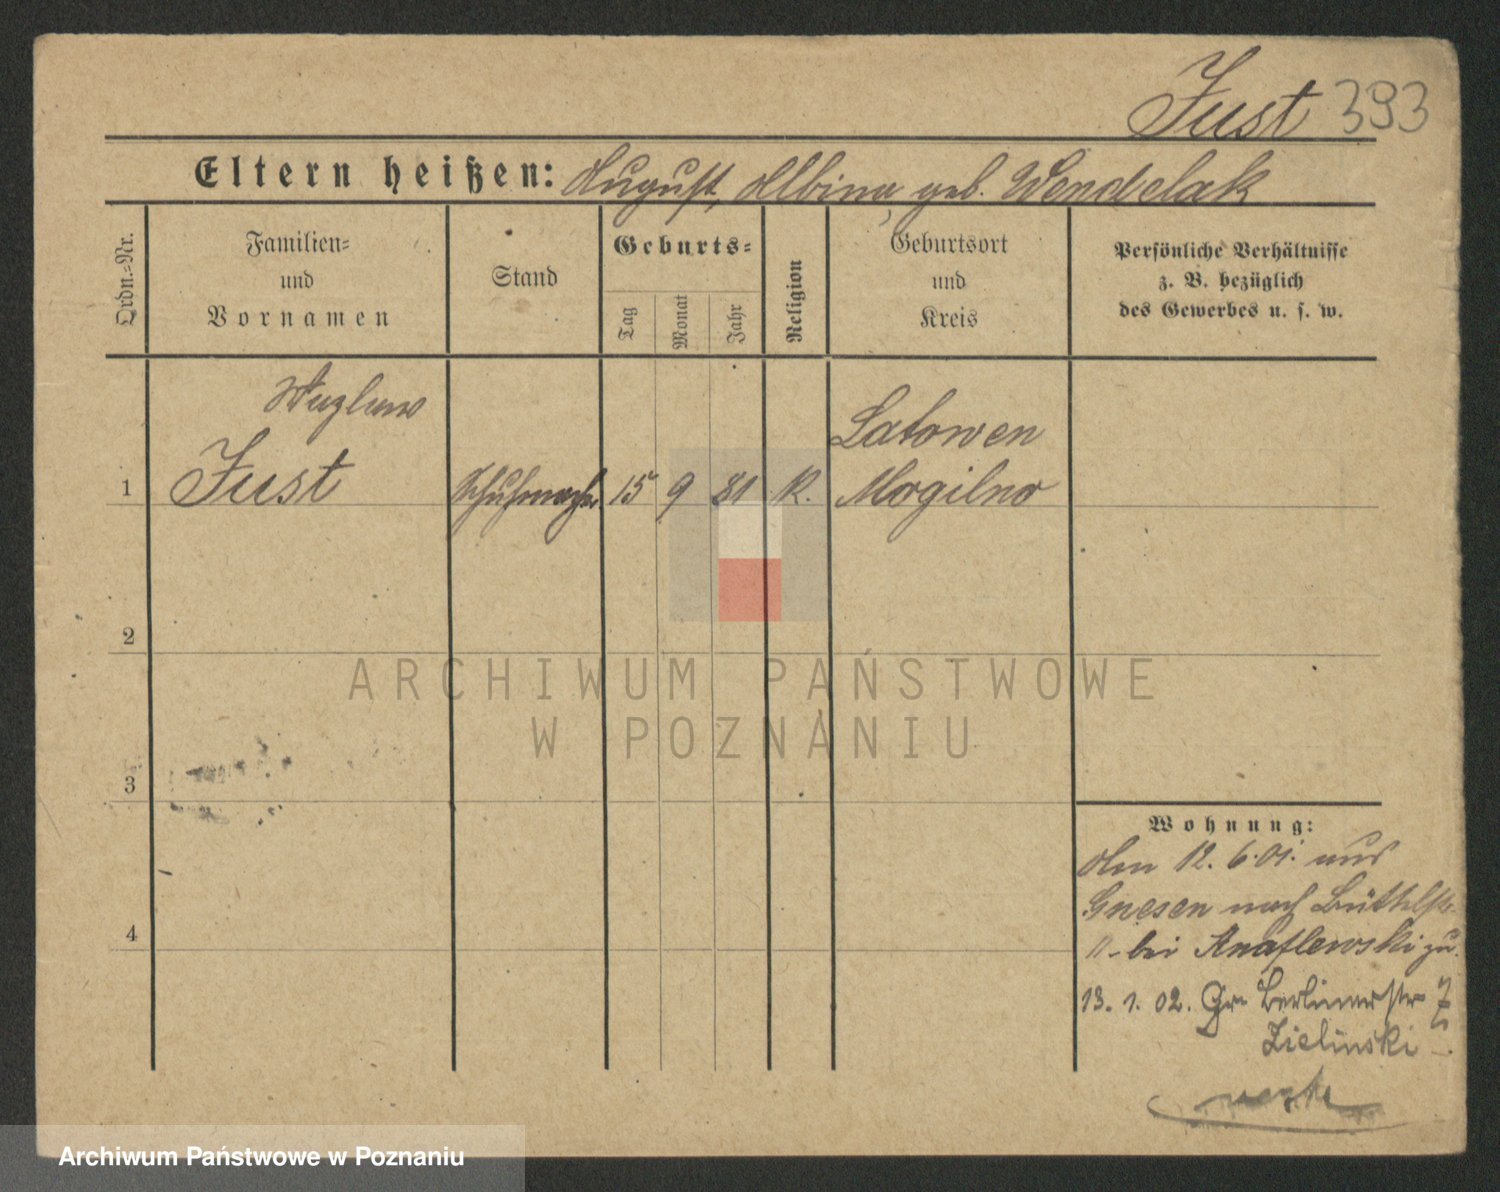 Just 393
Eltern heißen: August, Albina geb. Wendelak
Ordn.-Nr.
Familien-
und
Vornamen
Stand
Geburts-
Tag
Monat
Jahr
Religion
Geburtsort
und
Kreis
Persönliche Verhältnisse
z. B. bezüglich
des Gewerbes u. s. w.
Wazlaw
Just
1
Schuhmacher 15 9 81 K.
Latowen
Mogilno
2
3
4
Wohnung:
Am 12. 6. 01. aus
Gnesen nach
bei zu.
13. 1. 02. Gr. Berlinerstr.
Zielinski
ARCHIWUM PAŃSTWOWE
W POZNANIU
Archiwum Państwowe w Poznaniu